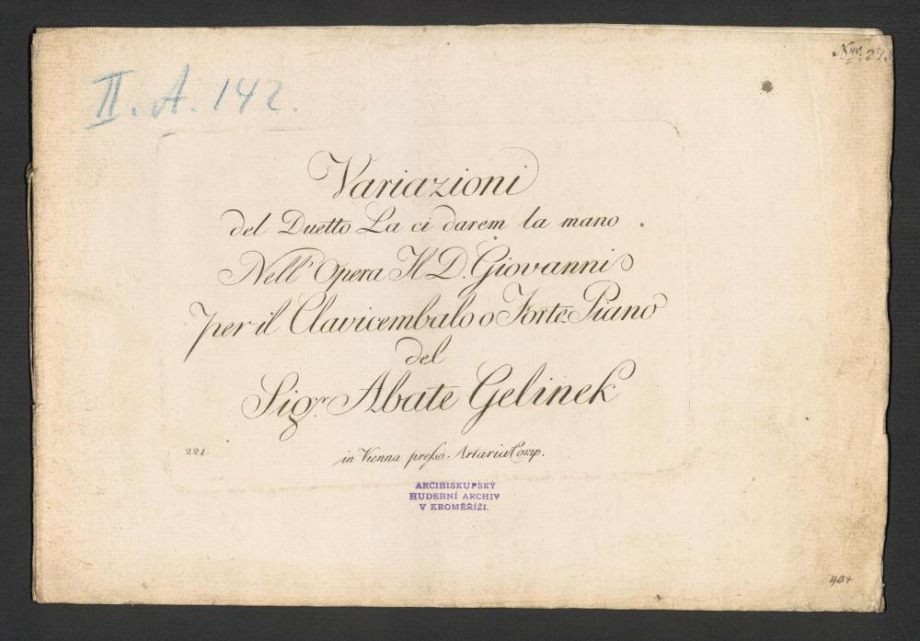 Nro. 27.
II. A. 142.
Variazioni
del Duetto La ci darem la mano
Nell' Opera Il D. Giovanni
per il Clavicembalo o Forte Piano
del
Sigr. Abate Gelinek
221.
in Vienna presso Artaria Comp.
ARCIBISKUPSKÝ
HUDEBNÍ ARCHIV
V KROMĚŘÍŽI.